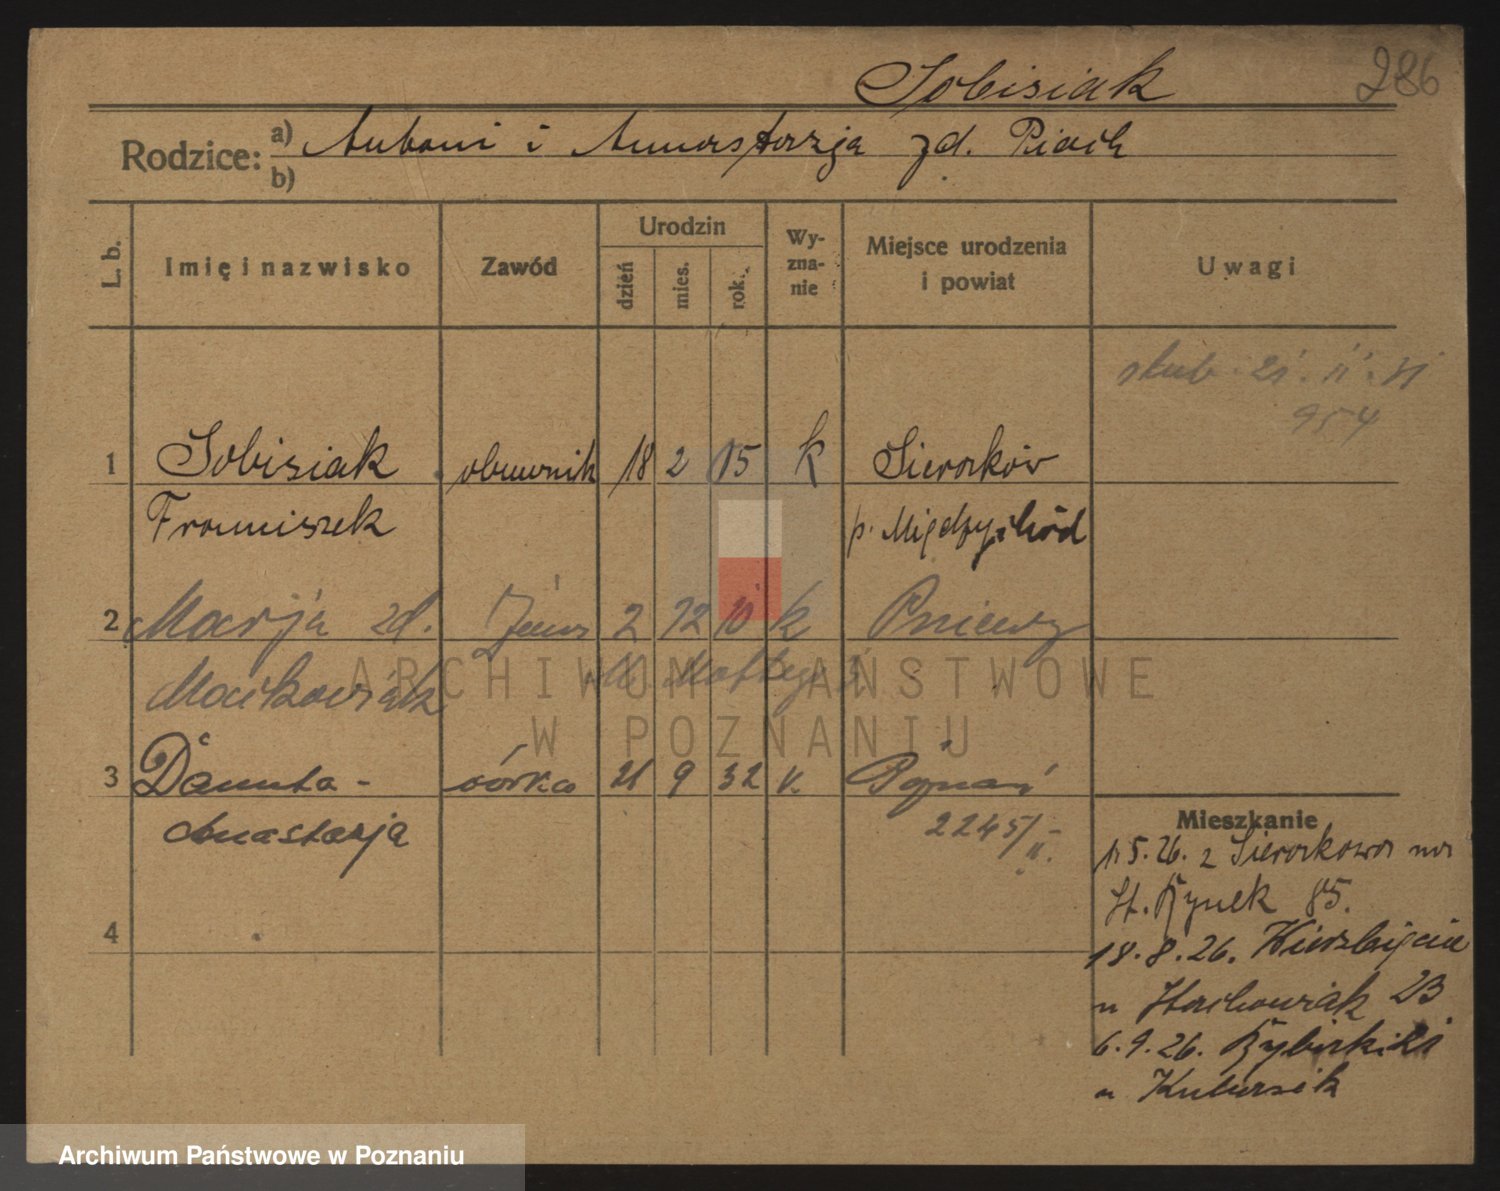 Sobisiak 286
Rodzice: a) Antoni i Anastazja zd. Piach
b)
L. b. Imię i nazwisko Zawód Urodzin dzień mies. rok. Wyznanie Miejsce urodzenia i powiat Uwagi
ślub. 21. 11. 31
954
1 Sobisiak obuwnik 18 2 05 k Sieraków
Franciszek p. Międzychód
2 Marja zd. żona 2 12 k Pniewy
Maćkowiak
3 Danuta - córka 21 9 32 k. Poznań
Anastazja 2245/II.
4
Mieszkanie
5.26. z Sierakowa na
St. Rynek 85.
18.8.26. Wierzbięcice
u Stachowiak 23
6.9.26. Rybiekiki
u Kubasik
ARCHIWUM PAŃSTWOWE
W POZNANIU
Archiwum Państwowe w Poznaniu